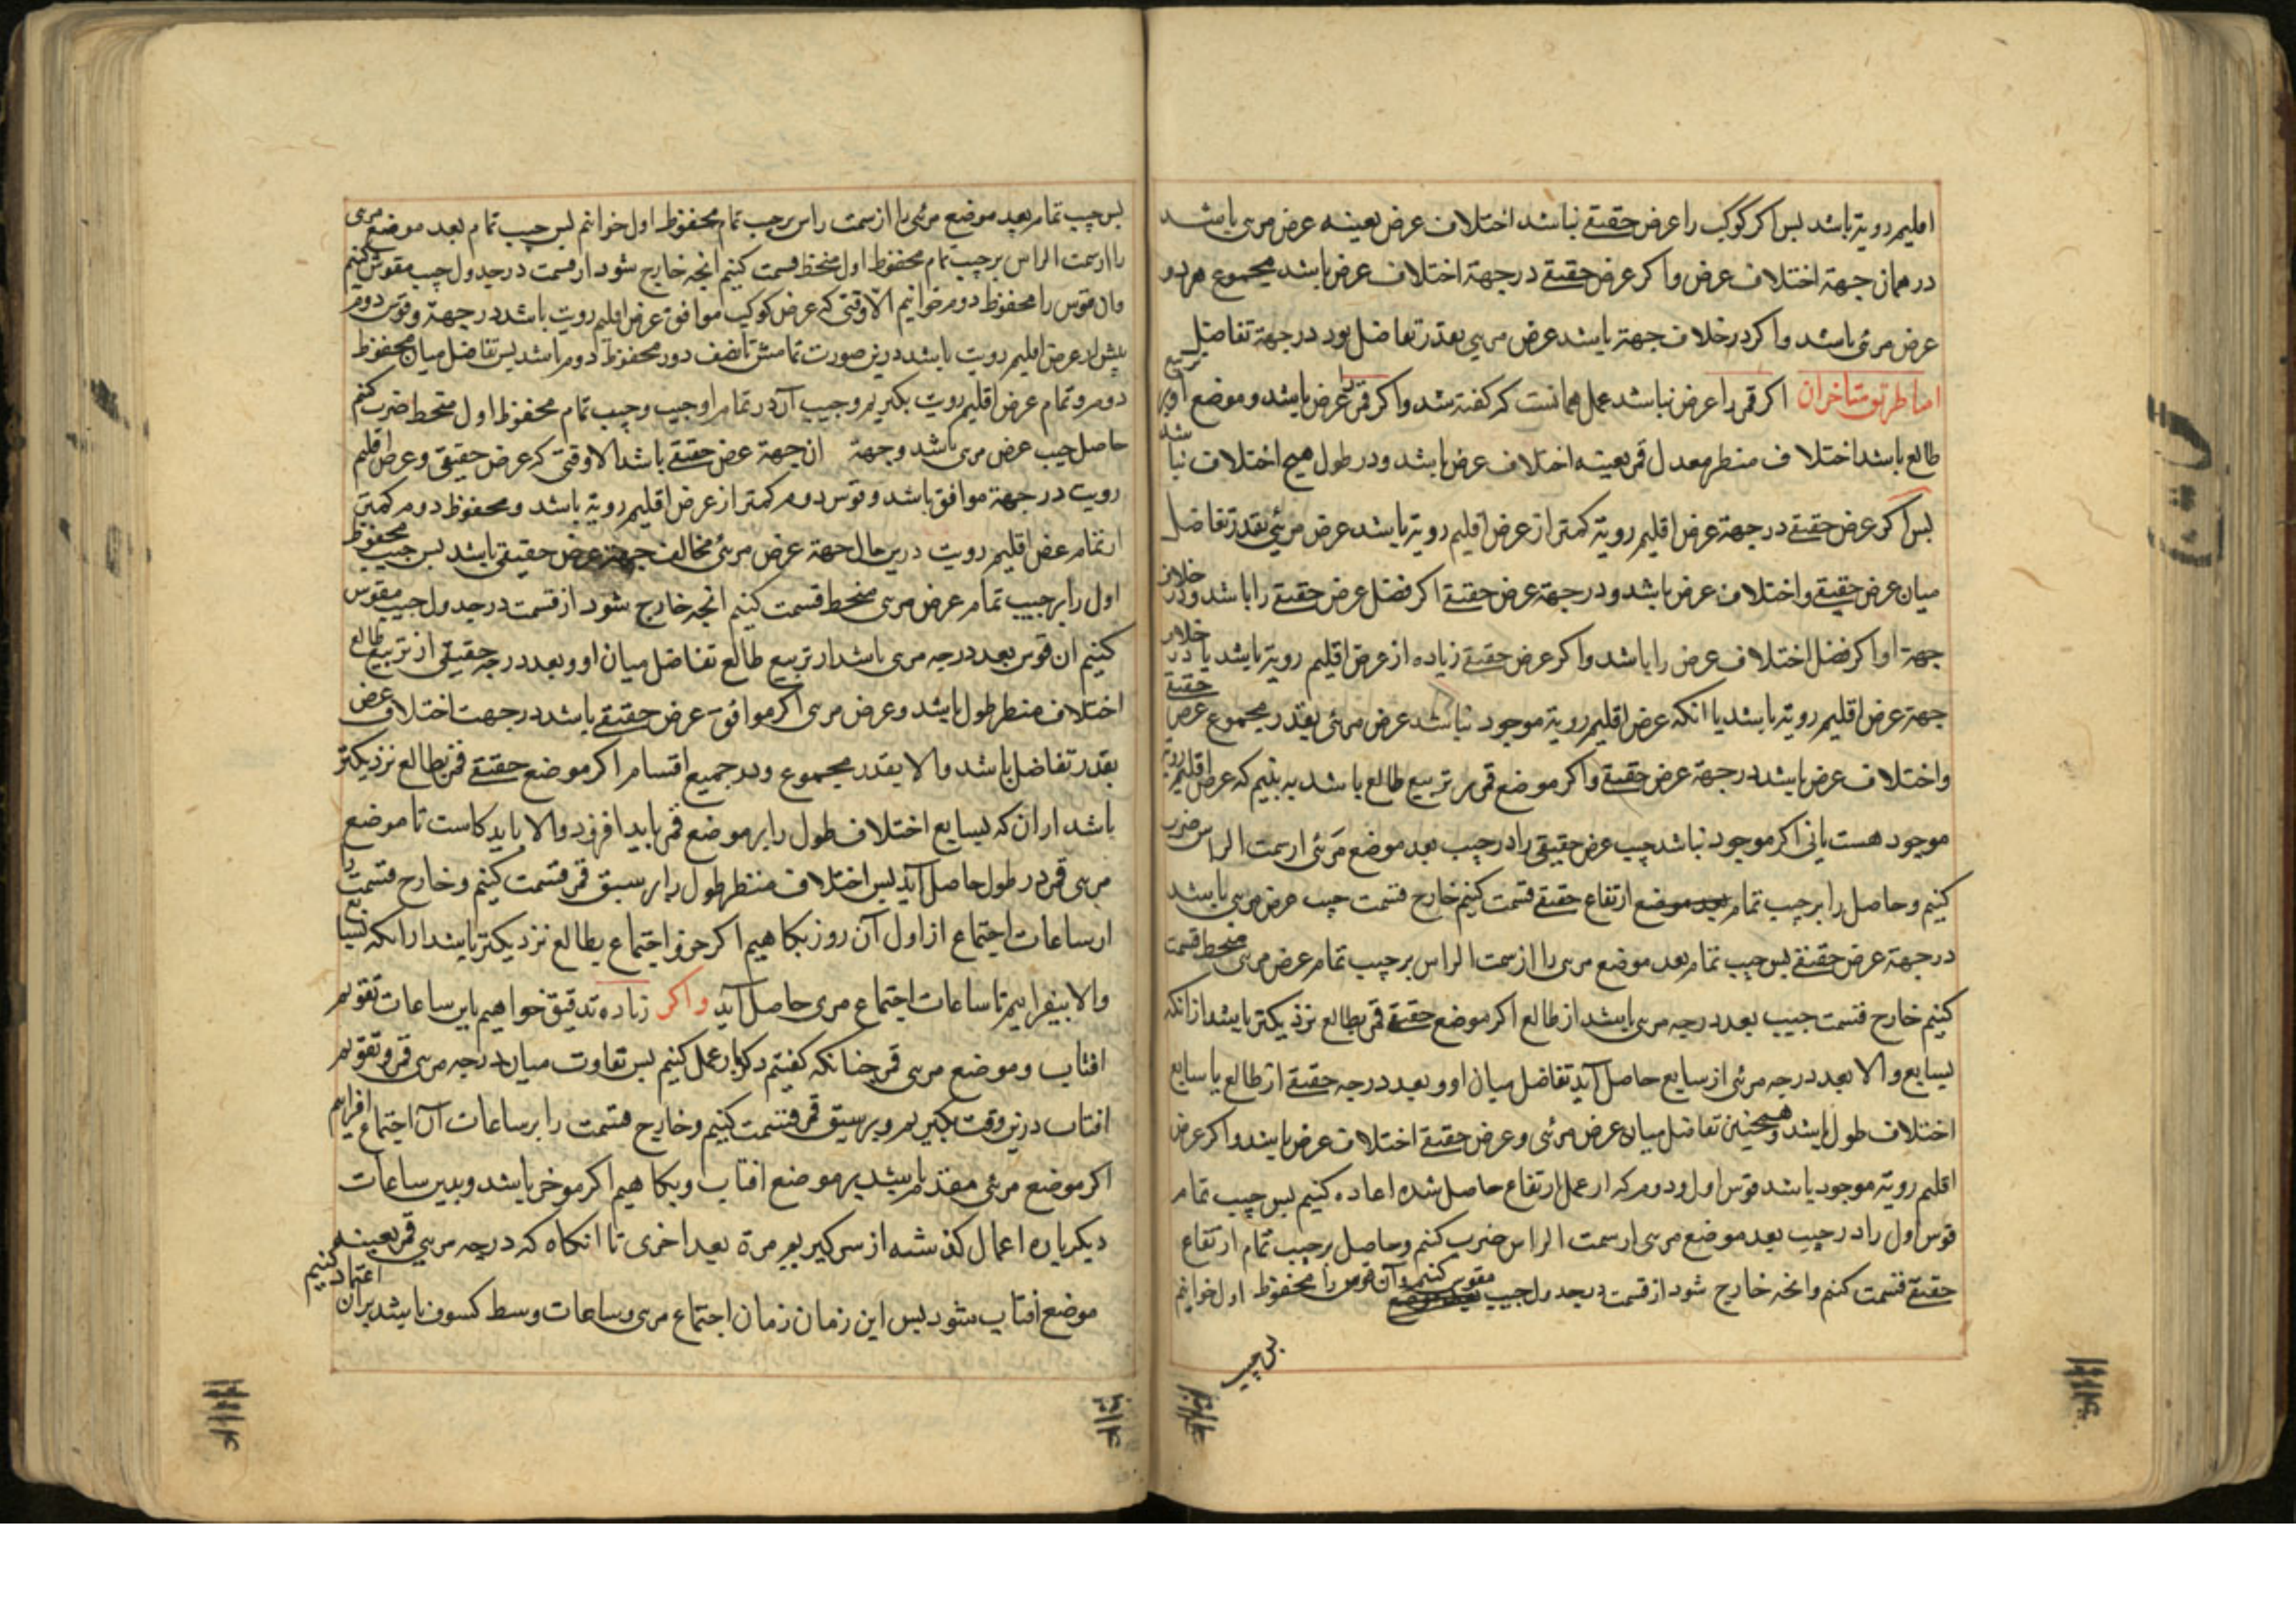 اقلیم رویة باشد بس اکر کوکب را عرض حقیقے نباشد اختلاف عرض بعینه عرض مرىی باشد
در همان جهة اختلاف عرض واکر عرض حقیقے در جهة اختلاف عرض باشد مجموع هر دو
عرض مرئی باشد واکر در خلاف جهة باشد عرض مرىی بقدر تفاضل بود در جهة تفاضل
اما طریق متاخران اکر قمر را عرض نباشد عمل همانست که کفته شد واکر قمر را عرض باشد وموضع او بر تربیع
طالع باشد اختلاف منطر معدل قمر بعینه اختلاف عرض باشد ودر طول هیچ اختلاف نباشد
بس اکر عرض حقیقے در جهة عرض اقلیم رویة کمتر از عرض اقلیم رویة باشد عرض مرئی بقدر تفاضل
میان عرض حقیقے واختلاف عرض باشد ودر جهة عرض حقیقے اکر فضل عرض حقیقے را باشد ودر خلاف
جهة او اکر فضل اختلاف عرض را باشد واکر عرض حقیقے زیاده از عرض اقلیم رویة باشد یا در خلاف
جهة عرض اقلیم رویة باشد یا انکه عرض اقلیم رویة موجود نباشد عرض مرئی بقدر مجموع عرض حقیقے
واختلاف عرض باشد در جهة عرض حقیقے واکر موضع قمر بر تربیع طالع باشد به بنیم که عرض اقلیم رویة
موجود هست یانی اکر موجود نباشد جیب عرض حقیقی را در جیب بعد موضع مرئی ارسمت الراس ضرب
کنیم وحاصل را بر جیب تمام ارتفاع حقیقے قسمت کنیم خارج قسمت جیب عرض مرىی باشد
در جهة عرض حقیقے بس جیب تمام بعد موضع مرىی را از سمت الراس بر جیب تمام عرض مرىی منحط قسمت
کنیم خارج قسمت جیب بعد درجه مرىی باشد از طالع اکر موضع حقیقے قمر بطالع نزدیکتر باشد از انکه
بسابع والا بعد درجه مرئی از سابع حاصل آید تفاضل میان او وبعد درجه حقیقے از طالع یا سابع
اختلاف طول باشد وهمچنین تفاضل میان عرض مرئی وعرض حقیقے اختلاف عرض باشد واکر عرض
اقلیم رویة موجود باشد قوس اول ودوم که ارعمل ارتفاع حاصل شده اعاده کنیم بس جیب تمام
قوس اول را در جیب بعد موضع مرىی ارسمت الراس ضرب کنم وحاصل بر جیب تمام ارتفاع
حقیقے قسمت کنم وانحه خارج شود از قسمت در جدول جیب مقوس کنیم وآن قوس را محفوظ اول خوانیم
بس جیب
بس جیب تمام بعد موضع مرئی را از سمت راس بر جیب تمام محفوظ اول خوانیم بس جیب تمام بعد موضع مرىی
را ارسمت الراس بر جیب تمام محفوظ اول منحط قسمت کنیم انجه خارج شود ار قسمت در جدول جیب مقوش کنیم
وان قوس را محفوظ دوم خوانیم الّا وقتی که عرض کوکب موافق عرض اقلیم رویت باشد در جهة وقوس دوم
بیش از عرض اقلیم رویت باشد درین صورت تمامش تا نصف دور محفوظ دوم باشد بس تفاضل میان محفوظ
دوم وتمام عرض اقلیم رویت بکیریم وجیب آن در تمام او جیب وجیب تمام محفوظ اول منحط ضرب کنم
حاصل جیب عرض مرىی باشد وجهة ان جهة عرض حقیقے باشد الا وقتی که عرض حقیقی وعرض اقلیم
رویت در جهة موافق باشد وقوس دوم کمتر از عرض اقلیم رویة باشد ومحفوظ دوم کمتر
ارتمام عرض اقلیم رویت درین حال جهة عرض مرئی مخالف جهة عرض حقیقی باشد بس جیب محفوظ
اول را بر جیب تمام عرض مرىی منحط قسمت کنیم انجه خارج شود از قسمت در جدول جیب مقوس
کنیم ان قوس بعد درجه مرىی باشد ار تربیع طالع تفاضل میان او وبعد درجه حقیقی از تربیع طالع
اختلاف منطر طول باشد وعرض مرىی اکر موافق عرض حقیقے باشد در جهت اختلاف عرض
بقدر تفاضل باشد والا بقدر مجموع ودر جمیع اقسام اکر موضع حقیقے قمر بطالع نزدیکتر
باشد اران که بسابع اختلاف طول را بر موضع قمر باید افزود والا باید کاست تا موضع
مرىی قمر در طول حاصل آید بس اختلاف منظر طول را بر سبق قمر قسمت کنیم وخارج قسمت را
ار ساعات اجتماع از اول آن روز بکاهیم اکر جزو اجتماع بطالع نزدیکتر باشد ارانکه بسابع
والا بیفزاییم تا ساعات اجتماع مرىی حاصل آید واکر زیاده تدقیق خواهیم باین ساعات تقویم
افتاب وموضع مرىی قمر جنانکه کفتیم دکربار عمل کنیم بس تفاوت میان درجه مرىی قمر وتقویم
افتاب درین وقت بکیریم وبر سبق قمر قسمت کنیم وخارج قسمت را بر ساعات آن اجتماع افزاییم
اکر موضع مرئی مقدم باشد بر موضع افتاب وبکاهیم اکر موخر باشد وبدین ساعات
دیکرباره اعمال کذشته از سر کیریم مرة بعد اخری تا انکاه که درجه مرىی قمر بعینه
موضع افتاب شود بس این زمان زمان اجتماع مرىی وساعات وسط کسوف باشد بران اعتماد کنیم